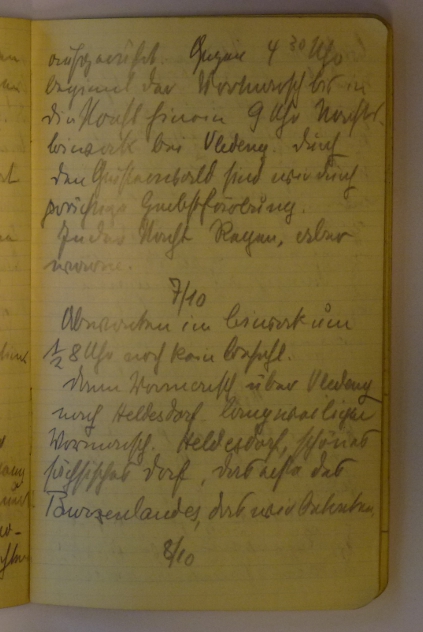 aufgewühlt. Gegen 4 30 Uhr
beginnt der Vormarsch bis in
die Nacht hinein 9 Uhr Nachts.
biwak bei Vledeny. Durch
den Geisterwald sind wir durch
Herbstfärbung.
In der Nacht Regen, aber
warm.
7/10
Abwarten im biwak um
½ 8 Uhr noch kein Befehl.
dann Vormarsch über Vledeny
nach Heldesdorf langweiliger
Vormarsch. Heldesdorf, schönes
sächsisches Dorf, das erste des
Burzenlandes, das wir betreten
8/10